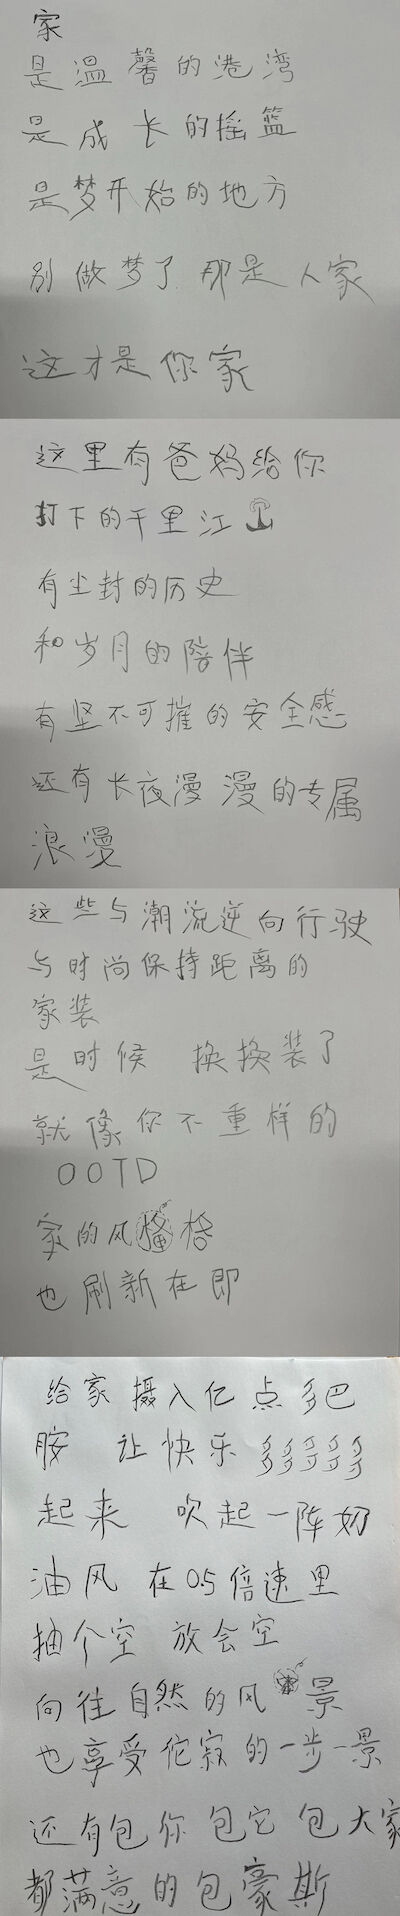 家
是温馨的港湾
是成长的摇篮
是梦开始的地方
别做梦了 那是人家
这才是你家
这里有爸妈给你
打下的千里江山
有尘封的历史
和岁月的陪伴
有坚不可摧的安全感
还有长夜漫漫的专属
浪漫
这些与潮流逆向行驶
与时尚保持距离的
家装
是时候 换换装了
就像你不重样的
OOTD
家的风格
也刷新在即
给家摄入亿点多巴
胺 让快乐多多多多多
起来 吹起一阵奶
油风 在0.5倍速里
抽个空 放会空
向往自然的风景
也享受侘寂的一步一景
还有包你包它包大家
都满意的包豪斯